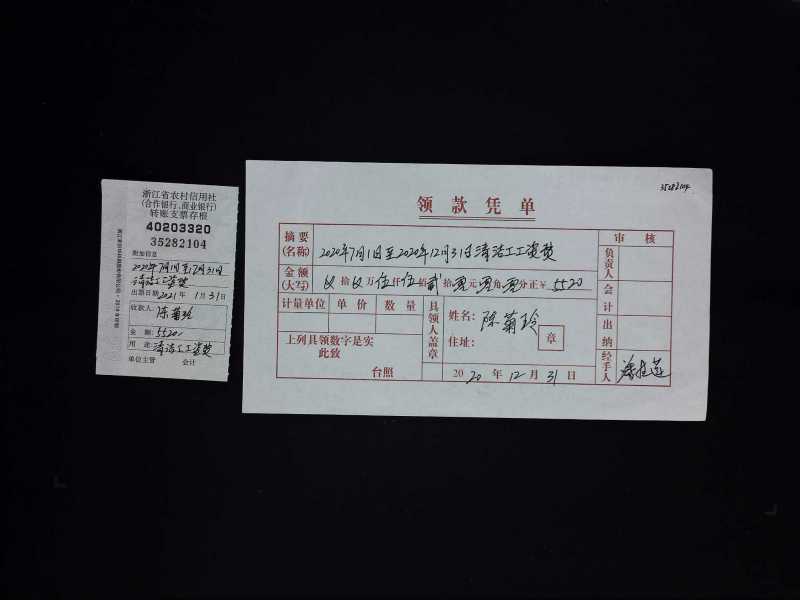 浙江省农村信用社
(合作银行、商业银行)
转账支票存根
40203320
35282104
附加信息
2020年7月1日至12月31日
清洁工工资费
出票日期2021年1月31日
收款人:陈菊玲
金额:5520
用途:清洁工工资费
单位主管 会计
35282104
领款凭单
摘要(名称) 2020年7月1日至2020年12月31日清洁工工资费
审核
金额(大写) 拾 万伍仟伍佰贰拾零元零角零分正¥5520
负责人
会计
计量单位 单价 数量
具领人盖章
姓名:陈菊玲
住址:
章
出纳
上列具领数字是实
此致
台照
2020年12月31日
经手人